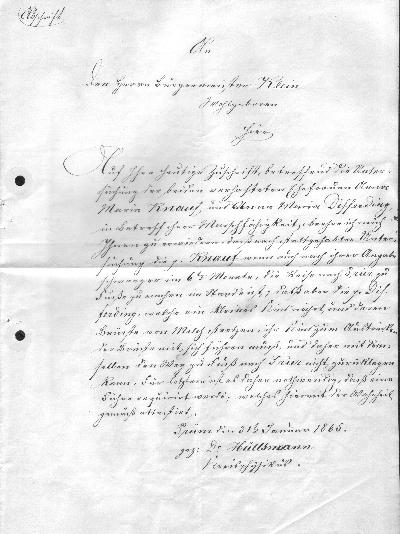 Abschrift
An
den Herrn Bürgermeister Klein
Wohlgeboren
Hier
Auf Ihre heutige Zuschrift, betreffend die Unter-
suchung der beiden verhafteten Ehefrauen Anna
Maria Knauf, und Anna Maria
in Betreff ihrer Marschfähigkeit, beehre ich mich
Ihnen zu erwiedern, daß nach stattgehabter Unter-
suchung die p. Knauf wenn auch nach ihrer Angabe
schwanger im 6t Monate, die Reise nach zu
Fuße zu machen im Stande ist; daß aber die p.
welche ein kleines Kind nährt, und deren
Brüste von Milch strotzen, ihr Kind zum
der Brüste mit sich führen muß, und daher mit dem-
selben den Weg zu Fuß nach nicht zurücklegen
kann. Für letztere ist es daher nothwendig, daß eine
Fuhre requirirt werde; welches hiermit der Wahrheit
gemäß attestirt,
Prüm den 31t Januar 1865.
gez: Dr Hüllsmann
Kreisphysikus.